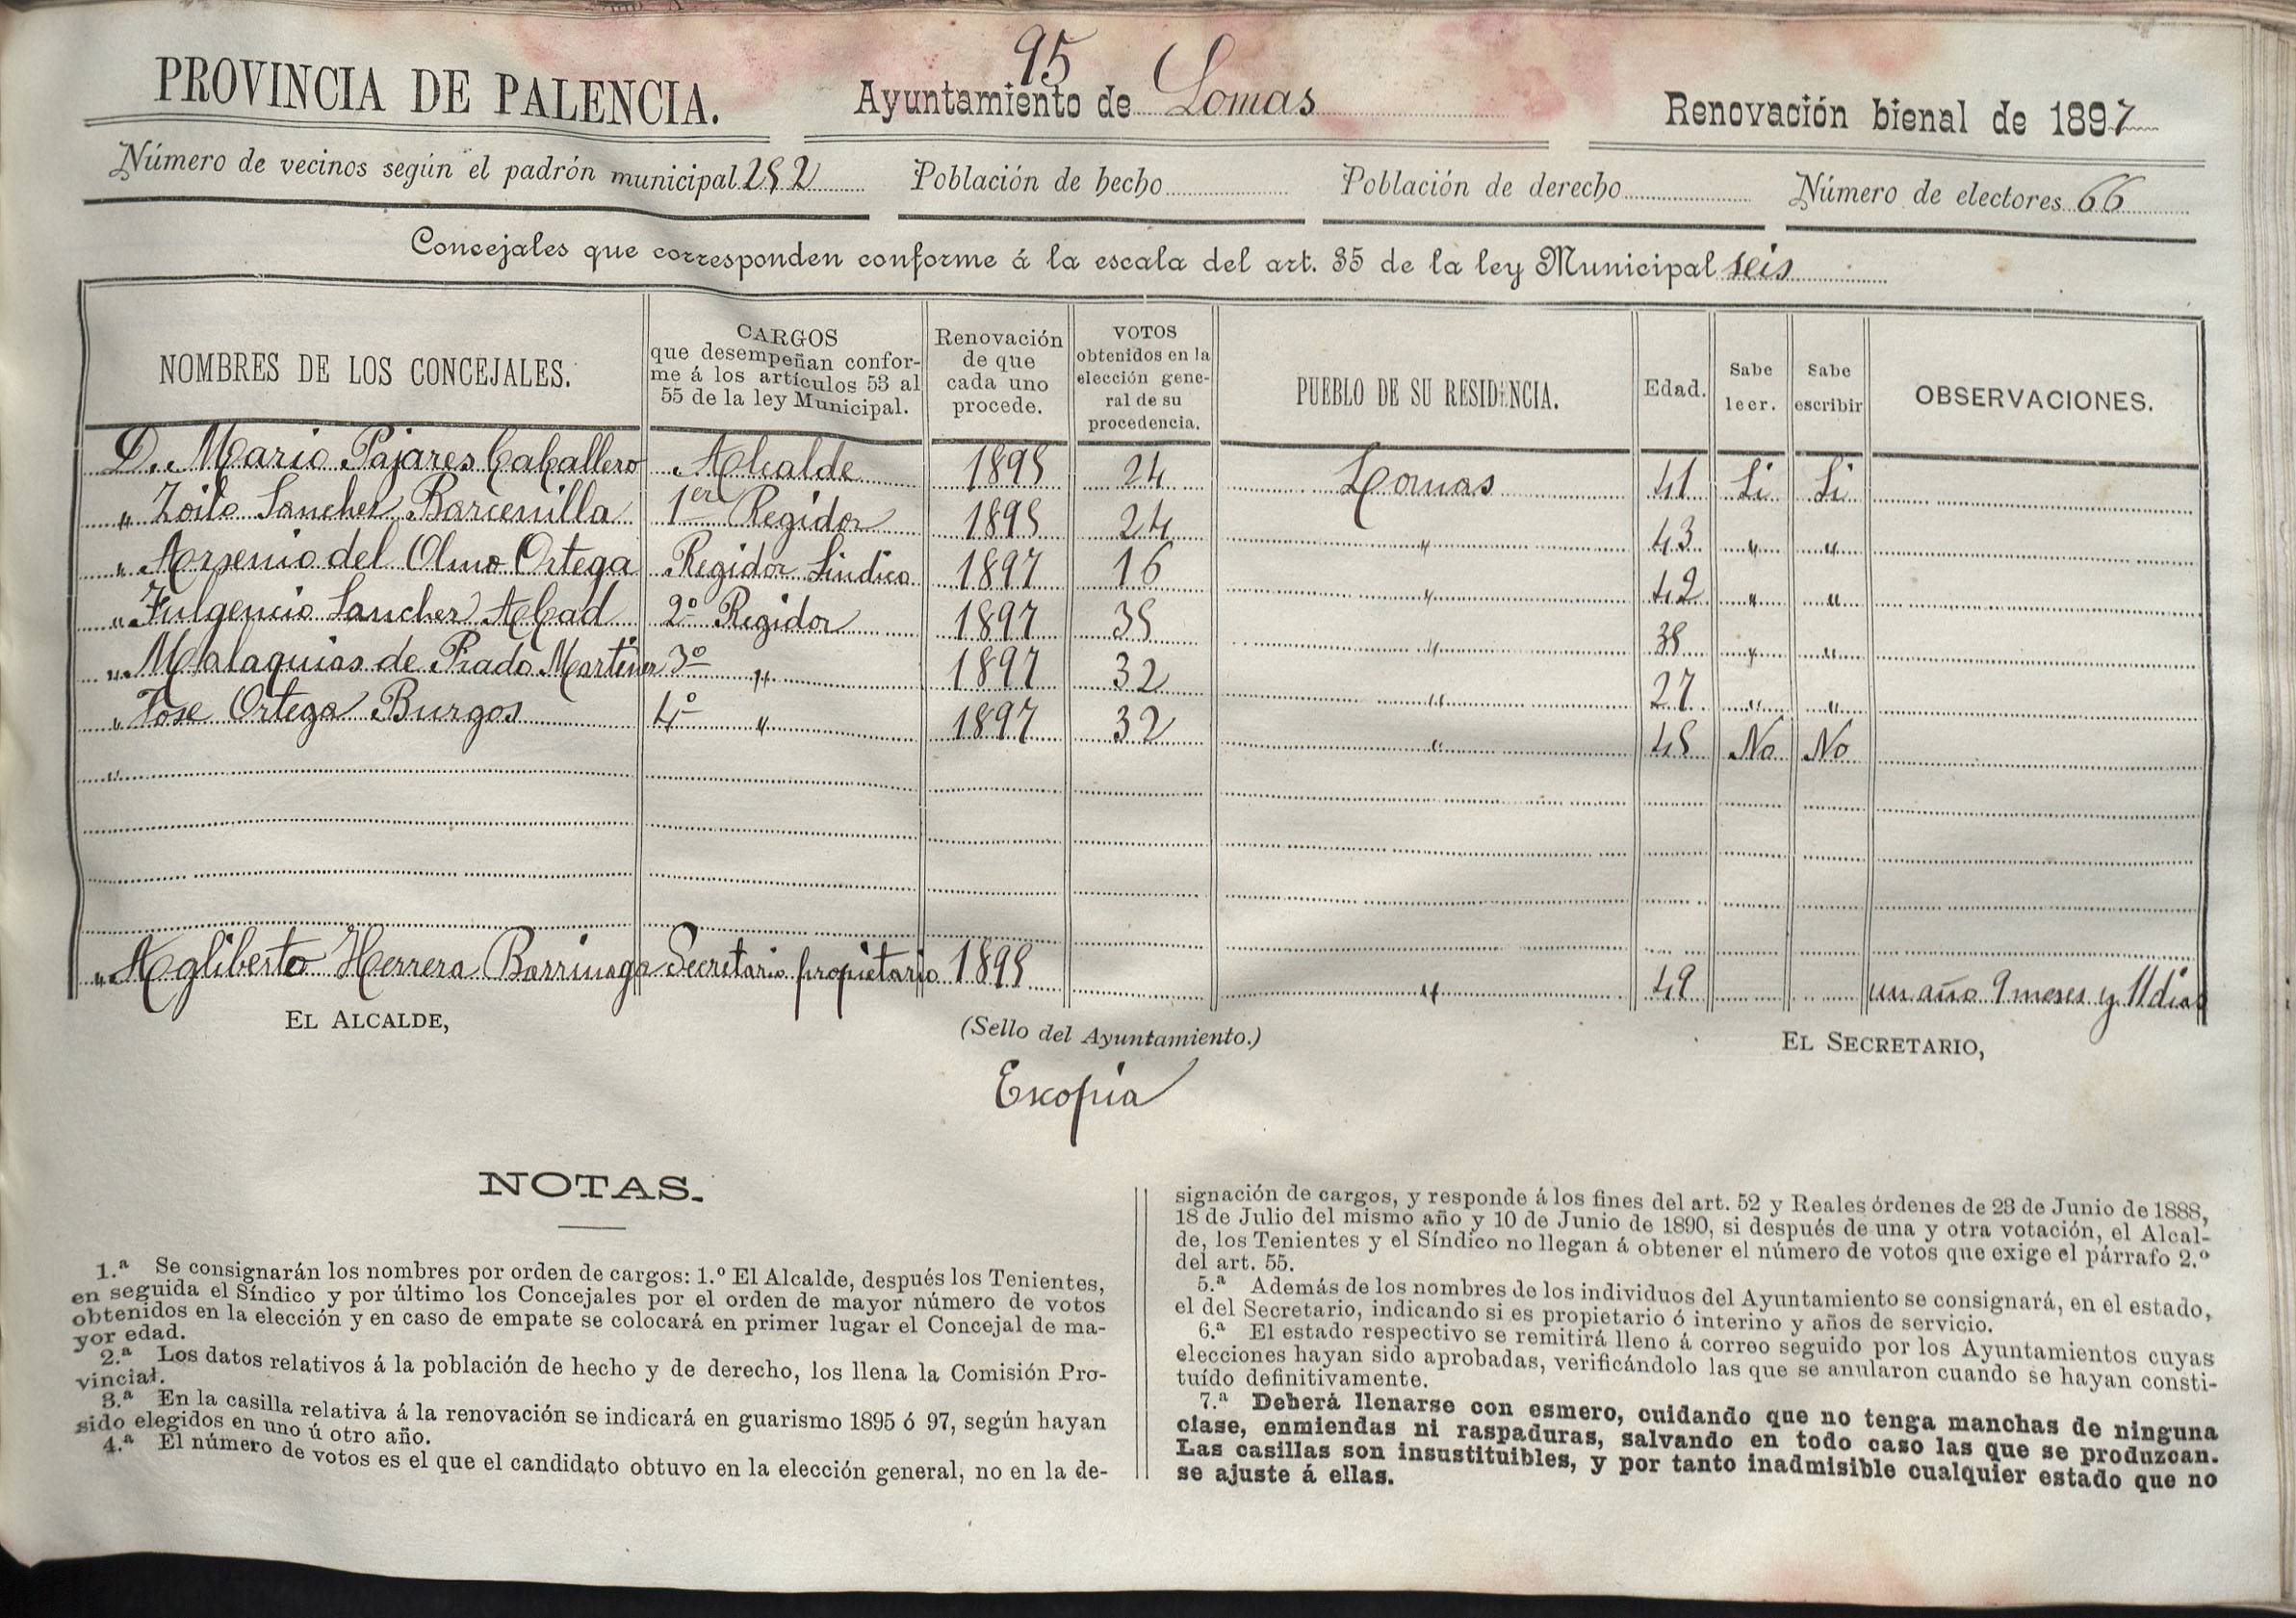 95
PROVINCIA DE PALENCIA. Ayuntamiento de Lomas Renovación bienal de 1897
Número de vecinos según el padrón municipal 252 Población de hecho Población de derecho Número de electores 66
Concejales que corresponden conforme á la escala del art. 35 de la ley Municipal seis
NOMBRES DE LOS CONCEJALES.
CARGOS
que desempeñan confor-
me á los artículos 53 al
55 de la ley Municipal.
Renovación
de que
cada uno
procede.
VOTOS
obtenidos en la
elección gene-
ral de su
procedencia.
PUEBLO DE SU RESIDENCIA.
Edad.
Sabe
leer.
Sabe
escribir
OBSERVACIONES.
D. Mario Pajares Caballero Alcalde 1895 24 Lomas 41 Si Si
" Zoilo Sanchez Barcenilla 1er Regidor 1895 24 " 43 " "
" Arsenio del Olmo Ortega Regidor Sindico 1897 16 " 42 " "
" Fulgencio Sanchez Abad 2º Regidor 1897 35 " 38 " "
" Malaquias de Prado Martinez 3º " 1897 32 " 27 " "
" Jose Ortega Burgos 4º " 1897 32 " 45 No No
"
" Agliberto Herrera Barrinaga Secretario propietario 1895 " 49 un año 9 meses y 11 dias
EL ALCALDE,
(Sello del Ayuntamiento.)
EL SECRETARIO,
Es copia
NOTAS.
1.ª Se consignarán los nombres por orden de cargos: 1.º El Alcalde, después los Tenientes,
en seguida el Síndico y por último los Concejales por el orden de mayor número de votos
obtenidos en la elección y en caso de empate se colocará en primer lugar el Concejal de ma-
yor edad.
2.ª Los datos relativos á la población de hecho y de derecho, los llena la Comisión Pro-
vincial.
3.ª En la casilla relativa á la renovación se indicará en guarismo 1895 ó 97, según hayan
sido elegidos en uno ú otro año.
4.ª El número de votos es el que el candidato obtuvo en la elección general, no en la de-
signación de cargos, y responde á los fines del art. 52 y Reales órdenes de 23 de Junio de 1888,
18 de Julio del mismo año y 10 de Junio de 1890, si después de una y otra votación, el Alcal-
de, los Tenientes y el Síndico no llegan á obtener el número de votos que exige el párrafo 2.º
del art. 55.
5.ª Además de los nombres de los individuos del Ayuntamiento se consignará, en el estado,
el del Secretario, indicando si es propietario ó interino y años de servicio.
6.ª El estado respectivo se remitirá lleno á correo seguido por los Ayuntamientos cuyas
elecciones hayan sido aprobadas, verificándolo las que se anularon cuando se hayan consti-
tuído definitivamente.
7.ª Deberá llenarse con esmero, cuidando que no tenga manchas de ninguna
clase, enmiendas ni raspaduras, salvando en todo caso las que se produzcan.
Las casillas son insustituibles, y por tanto inadmisible cualquier estado que no
se ajuste á ellas.